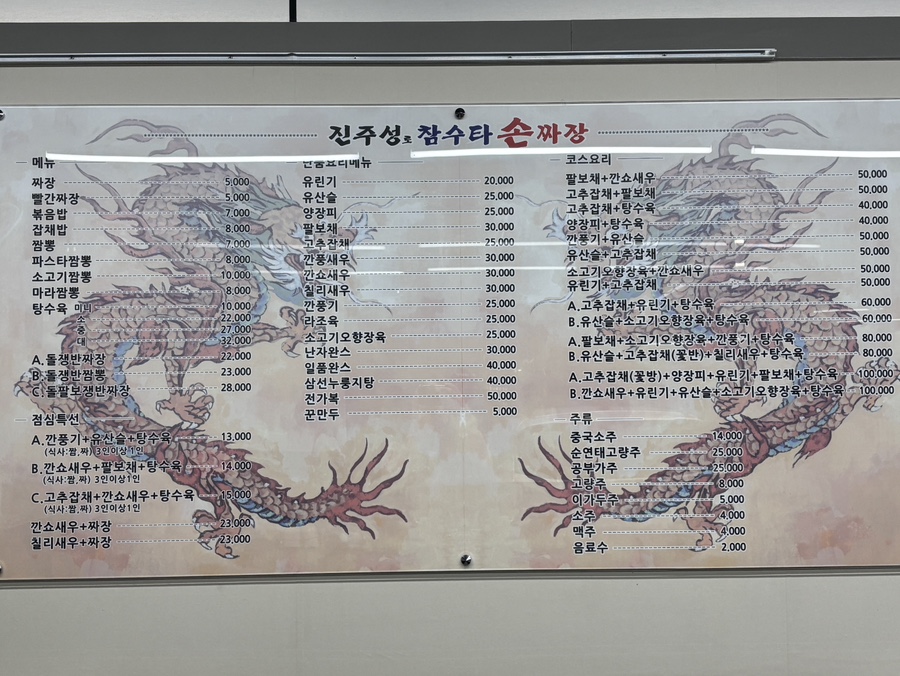 진주성로 참수타 손짜장
메뉴
짜장 5,000
빨간짜장 5,000
볶음밥 7,000
잡채밥 8,000
짬뽕 7,000
파스타짬뽕 8,000
소고기짬뽕 10,000
마라짬뽕 8,000
탕수육 미니 10,000
소 22,000
중 27,000
대 32,000
A.돌쟁반짜장 22,000
B.돌쟁반짬뽕 23,000
C.돌팔보쟁반짜장 28,000
점심특선
A.깐풍기+유산슬+탕수육 13,000
(식사:짬,짜) 3인이상1인
B.깐쇼새우+팔보채+탕수육 14,000
(식사:짬,짜) 3인이상1인
C.고추잡채+깐쇼새우+탕수육 15,000
(식사:짬,짜) 3인이상1인
깐쇼새우+짜장 23,000
칠리새우+짜장 23,000
단품요리메뉴
유린기 20,000
유산슬 25,000
양장피 25,000
팔보채 30,000
고추잡채 25,000
깐풍새우 30,000
깐쇼새우 30,000
칠리새우 30,000
깐풍기 25,000
라조육 25,000
소고기오향장육 30,000
난자완스 30,000
일품완스 40,000
삼선누룽지탕 40,000
전가복 50,000
꾼만두 5,000
코스요리
팔보채+깐쇼새우 50,000
고추잡채+팔보채 50,000
고추잡채+탕수육 40,000
양장피+탕수육 40,000
깐풍기+유산슬 50,000
유산슬+고추잡채 50,000
소고기오향장육+깐쇼새우 50,000
유린기+고추잡채 50,000
A.고추잡채+유린기+탕수육 60,000
B.유산슬+소고기오향장육+탕수육 60,000
A.팔보채+소고기오향장육+깐풍기+탕수육 80,000
B.유산슬+고추잡채(꽃반)+칠리새우+탕수육 80,000
A.고추잡채(꽃방)+양장피+유린기+팔보채+탕수육 100,000
B.깐쇼새우+유린기+유산슬+소고기오향장육+탕수육 100,000
주류
중국소주 14,000
순연태고량주 25,000
공부가주 25,000
고량주 8,000
이가두주 5,000
소주 4,000
맥주 4,000
음료수 2,000